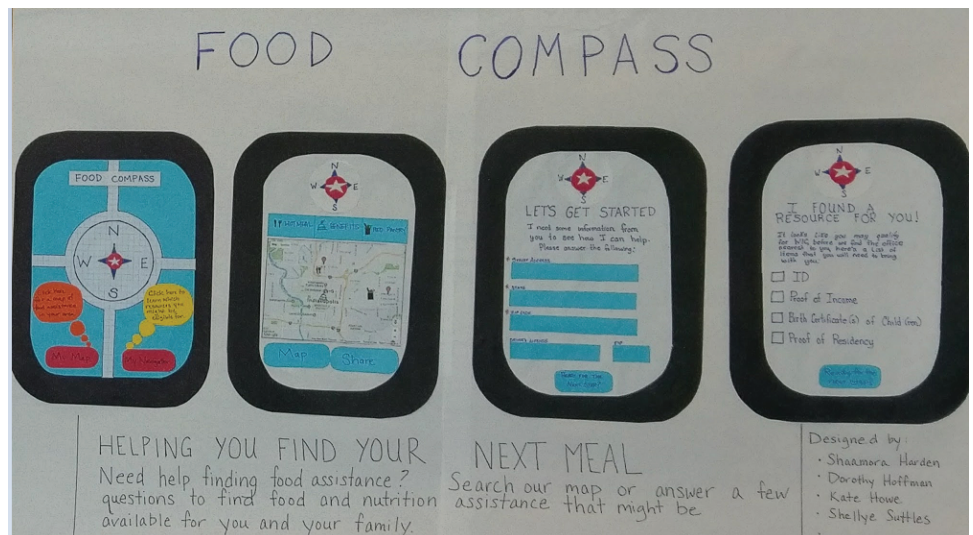 FOOD COMPASS
FOOD COMPASS
N
W E
S
Click here
for a map of
in your area.
Click here to
learn which
resources you
might be
eligible for.
My Map
My Navigator
N
W E
S
HOT MEAL BENEFITS FOOD PANTRY
Map Share
N
W E
S
LET'S GET STARTED
I need some information from
you to see how I can help.
Please answer the following:
ZIP CODE
N
W E
S
I FOUND A
RESOURCE FOR YOU!
It looks like you may qualify
for WIC, before we find the office
nearest to you, here's a list of
items that you will need to bring
with you.
ID
Proof of Income
Birth Certificate(s) of Child(ren)
Proof of Residency
Ready for the
next step?
HELPING YOU FIND YOUR NEXT MEAL
Need help finding food assistance? Search our map or answer a few
questions to find food and nutrition assistance that might be
available for you and your family.
Designed by:
• Shaamora Harden
• Dorothy Hoffman
• Kate Howe
• Shellye Suttles